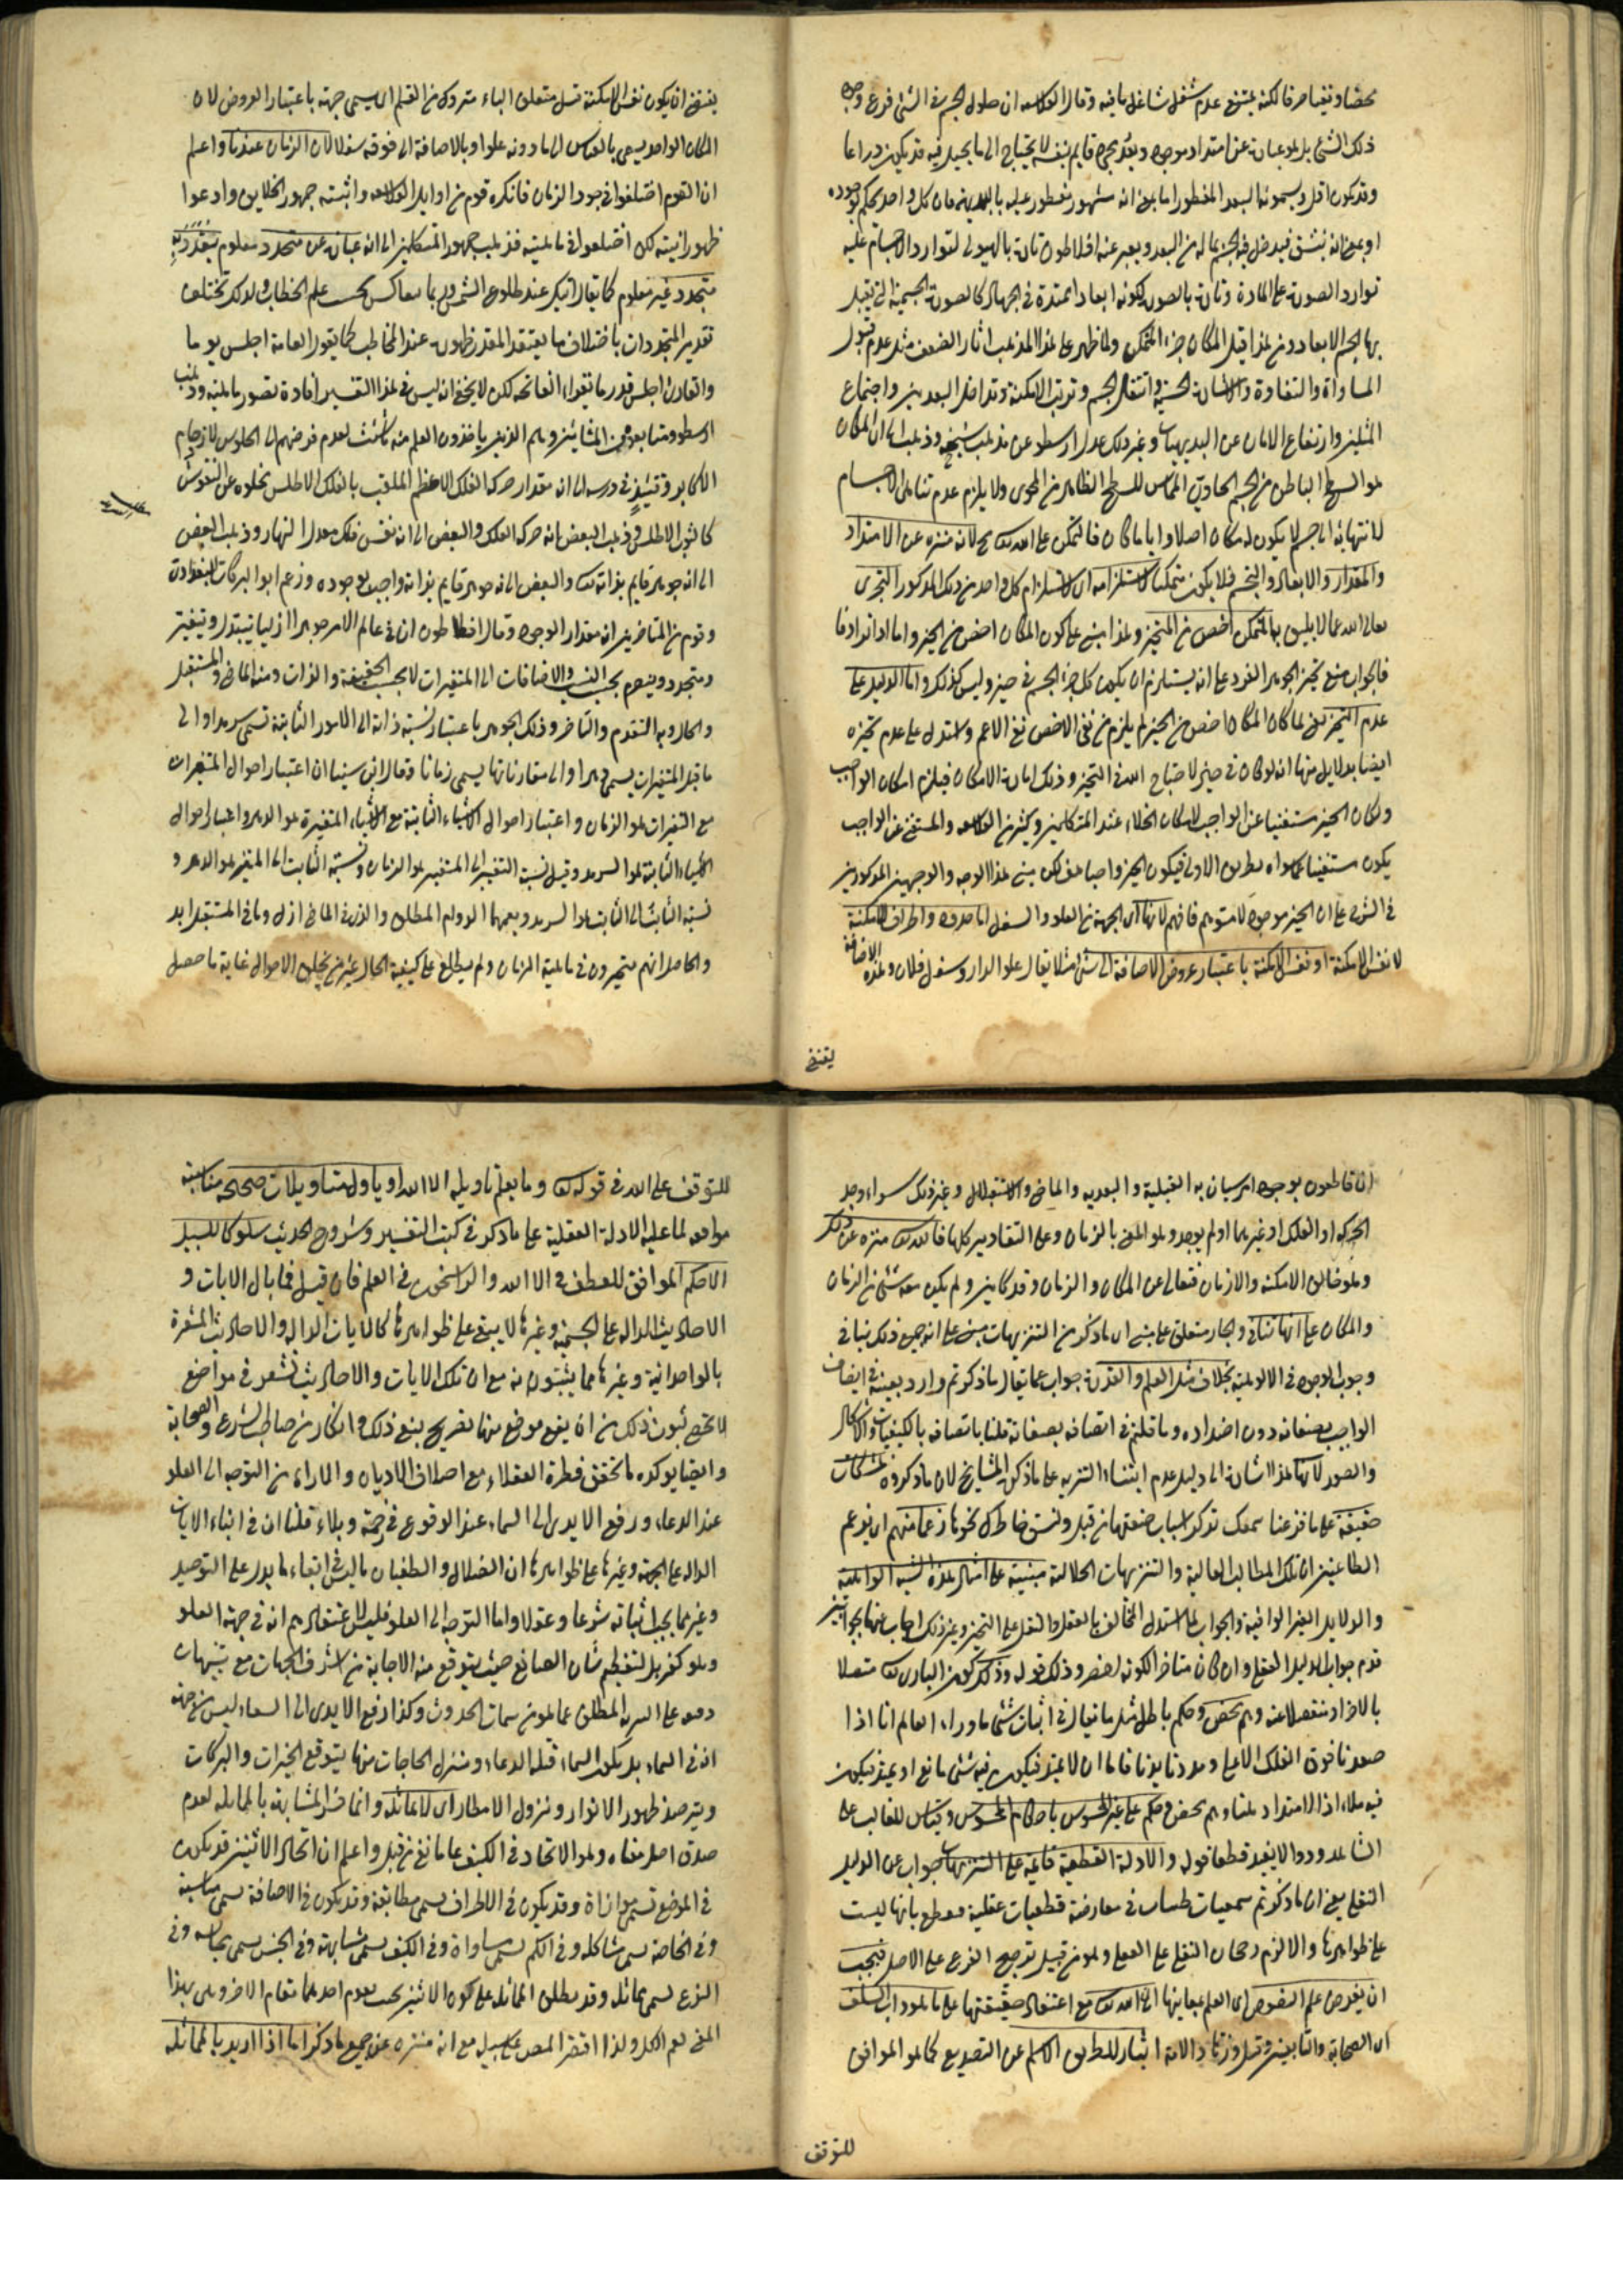 ذلك الشئ بل هو عبارة عن امتداد موجود وبعد مجرد قايم بنفسه لا يحتاج الى ما يحيل فيه قد يكون ذراعا
وقد يكون اقل ويسمونه البعد المفطور اما بمعنى انه مشهور مفطور عليه بالبديهة فان كل واحد يحكم بوجوده
او بمعنى انه ينشق فيدخل فيه الجسم بماله من البعد ويعبر عنه افلاطون تارة بالهيولى لتوارد الاجسام عليه
توارد الصورة على المادة وتارة بالصورة لكونه ابعادا ممتدة في الجهات كالصورة الجسمية التي يقبل
بها الجسم الابعاد ومن هذا قيل المكان جزء المتمكن ولما ظهر على هذا المذهب اثار الضعف مثل عدم قبول
المساواة والتفاوة والاشارة الحسية وانتقال الجسم وترتب الامكنة وتداخل البعدين واجتماع
المثلين وارتفاع الامان عن البديهيات وغير ذلك عدل ارسطو عن مذهب شيخه وذهب الى ان المكان
هو السطح الباطن من الجسم الحاوي المماس للسطح الظاهر من المحوى ولا يلزم عدم تناهى الاجسام
لانتهائه الى جسم لا يكون له مكان اصلا وايا ما كان فالتمكن على الله تعالى مح لانه منزه عن الامتداد
والمقدار والابعاد والتجسم فلا يكون متمكنا لاستلزامه اى لاستلزام كل واحد من ذلك المذكور التجزى
تعالى الله عما لا يليق به المتمكن اخص من المتحيز وهذا مبنى على كون المكان اخص من الحيز واما اذا ترادفا
فالجواب منع تحيز الجوهر الفرد على انه يستلزم ان يكون كل جزء الجسم في حيز وليس كذلك واما الدليل على
عدم التحيز يعنى لما كان المكان اخص من الحيز لم يلزم من نفى الاخص نفى الاعم واستدل على عدم تحيزه
ايضا بدلايل منها انه لو كان في حيز لاحتاج الله في التحيز وذلك امارة الامكان فيلزم امكان الواجب
ولكان الحيز مستغنيا عن الواجب لامكان الخلاء عند المتكلمين وكثير من الفلاسفة والمستغنى عن الواجب
يكون مستغنيا عما سواه بطريق الاولى فيكون الحيز واجبا هف لكن مبنى هذا الوجه والوجهين المذكورين
في الشرح على ان الحيز موجود لا متوهم فافهم لانها اى الجهة من العلو والسفل اما حدود واطراف للامكنة
لا نفس الامكنة او نفس الامكنة باعتبار عروض الاضافة الى شئ مثلا يقال علو الدار وسفل فلان وهذه الاضافة
يقتضى
يقتضى ان يكون نفس الامكنة قيل متعلق الباء متروك من القلم اى يسمى جهة باعتبار العروض لان
المكان الواحد يسمى بالقياس الى ما دونه علوا وبالاضافة الى فوقه سفلا لان الزمان عندنا واعلم
ان القوم اختلفوا في وجود الزمان فانكره قوم من اوايل الفلاسفة واثبته جمهور الخلايق وادعوا
ظهور انيته لكن اختلفوا في ماهيته فذهب جمهور المتكلمين الى انه عبارة عن متجدد معلوم يتقدر به
متجدد غير معلوم كما يقال اتيك عند طلوع الشمس وربما يعاكس بحسب علم الخطاب ولذلك تختلف
تقدير المتجددات باختلاف ما يعتقد المقدر ظهوره عند المخاطب كما يقول العامة اجلس يوما
والقارئ اجلس قدر ما تقراء الفاتحة لكن لا يخفى انه ليس في هذا التفسير افادة تصور ماهيته وذهب
ارسطو ومتابعوه من المشائين وهم الذين ياخذون العلم منه
الاكابر وقتئذ في درسه الى انه مقدار حركة الفلك الاعظم الملقب بالفلك الاطلس لخلوه عن النقوش
كالثوب الاطلس وذهب البعض بانه حركة الفلك والبعض الى انه نفس فلك معدل النهار وذهب البعض
الى انه جوهر قايم بذاته والبعض الى انه جوهر قايم بذاته واجب لوجوده وزعم ابو البركات البغدادى
وقوم من المتاخرين انه مقدار الوجود وقال افلاطون ان في عالم الامر جوهرا ازليا يتبدل ويتغير
ويتجدد ويتصرم بحسب النسب والاضافات الى المتغيرات لا بحسب الحقيقة والذات ومنه الماضى والمستقبل
والحال وبه التقدم والتاخر وذلك الجوهر باعتبار نسبة ذاته الى الامور الثابتة تسمى سرمدا والى
ما قبل المتغيرات يسمى دهرا والى مقارناتها يسمى زمانا وقال ابن سينا ان اعتبار احوال المتغيرات
مع المتغيرات هو الزمان واعتبار احوال الاشياء الثابتة مع الاشياء المتغيرة هو الدهر واعتبار احوال
الاشياء الثابتة هو السرمد وقيل نسبة المتغير الى المتغير هو الزمان ونسبة الثابت الى المتغير هو الدهر و
نسبة الثابت الى الثابت هو السرمد ويعمها الدوام المطلق والذى في الماضى ازل وما في المستقبل ابد
والحاصل انهم متحيرون في ماهية الزمان ولم يطلع على كيفية الحال غير من يخلق الاحوال غاية ما حصل
انا قاطعون بوجود امر سيان به القبلية والبعدية والماضى والاستقبال وغير ذلك سواء وجد
الحركة او الفلك او غيرهما او لم يوجد وهو المعنى بالزمان وعلى التقادير كلها فالله تعالى منزه عن ذلك
وهو خالق الامكنة والازمان فتعالى عن المكان والزمان وقد كان ولم يكن معه شئ من الزمان
والمكان على انها تنافى والجار متعلق على مبنى اى ما ذكر من التنزيهات مبنى على انه يعنى ذلك ينافى
وجوب الوجود في الالوهية بخلاف مثل العلم والقدرة جواب عما يقال ما ذكرتم وارد بعينه في اتصاف
الواجب بصفاته دون اضداده وما قلتم في اتصافه بصفاته قلنا باتصافه بالكيفيات والاشكال
والصور لانها هذا اشارة الى دليل عدم ابتناء التنزيه على ما ذكره المشايخ لان ما ذكروه تمسكات
ضعيفة على ما قرعنا سمعك تذكر اسباب ضعفها من قبل
الطاعنين ان تلك المطالب العالية والتنزيهات الجلالية مبنية على امثال هذه الشبه الواهية
والدلايل الغير الوافية والجواب لما استدل المخالف بالعقل والنقل على التحيز وغير ذلك اجاب عنها بجوابين
قدم جواب الدليل العقلى وان كان متاخرا لكونه اخصر وذلك قوله وذلك كون البارى تعالى متصلا
بالاخر او منفصلا عنه وهم محض وحكم باطل مثل ما يقال في اثبات شئ ما وراء العالم انا اذا
صعدنا فوق الفلك الاعلى ومددنا يدنا فاما ان لا يمتد فيكون فيه شئ مانع او يمتد فيكون
فيه ملاء اذ الامتداد هناك وهم محض وحكم على غير المحسوس باحكام المحسوس وقياس للغائب على
الشاهد وذا لا يفيد قطعا قوله والادلة القطعية قائمة على التنزيهات جواب عن الدليل
النقلى يعنى ان ما ذكرتم سمعيات ظنيات في معارضة قطعيات عقلية فيقطع بانها ليست
على ظواهرها والا لزم رجحان النقلى على العقلى وهو من قبيل ترجيح الفرع على الاصل فيجب
ان يفوض علم النصوص اى العلم بمعانيها الى الله تعالى مع اعتقاد حقيقتها على ما هو داب السلف
اى الصحابة والتابعين
للتوقف
للتوقف على الله في قوله تعالى وما يعلم تاويله الا الله او ياول بتاويلات صحيحة مناسبة
موافقة لما عليه الادلة العقلية على ما ذكر في كتب التفسير وشروح الحديث سلوكا للسبيل
الاحكم الموافق للعطف في الا الله والراسخون في العلم فان قيل فما بال الايات و
الاحاديث الدالة على الجسمية وغيرها لا يبقى على ظواهرها كالايات الدالة والاحاديث المشعرة
بالواحدانية وغيرها مما يثبتون به مع ان تلك الايات والاحاديث تشعر في مواضع
لا تحصى ثبوت ذلك من ان يقع موضع منها تصريح بنفى ذلك وانكار من صاحب الشرع والصحابة
وايضا يوكده ما تحقق فطرة العقلاء مع اختلاف الاديان والاراء من التوجه الى العلو
عند الدعاء ورفع الايدى الى السماء عند الوقوع في رحمة وبلاء قلنا ان في ابقاء الايات
الدالة على الجهة وغيرها على ظواهرها من الضلال والطغيان ما ليس في ابقاء ما يدل على التوحيد
وغير مما يجب اثباته شرعا وعقلا واما التوجه الى العلو فليس لاعتقادهم انه في جهة العلو
وهو كفر بل لتعظيم شان الصانع حيث يتوقع منه الاجابة من اشرف الجهات مع تنبيهات
دفعه على السر المطلق عما هو من سمات الحدوث وكذا رفع الايدى الى السماء ليس من جهة
انه في السماء بل يكون السماء قبلة الدعاء ومنزل الحاجات منها يتوقع الخيرات والبركات
ويترصد ظهور الانوار ونزول الامطار اى لا يماثله وانما فسر المشابهة بالمماثلة لعدم
صدق اصل معناه وهو الاتحاد في الكيف على ما نفى من قبل واعلم ان اتحاد الاثنين قد يكون
في الموضع تسمى موازاة وقد يكون في الاطراف يسمى مطابقة وقد يكون في الاضافة يسمى مناسبة
وفي الخاصة يسمى مشاكلة وفي الكم يسمى مساواة وفي الكيف يسمى مشابهة وفي الجنس يسمى مجانسة وفي
النوع يسمى مماثلة وقد يطلق المماثلة على كون الاثنين بحيث يقوم احدهما مقام الاخر وهى بهذا
المعنى يعم الكل ولذا اقتصر المص على سبيله مع انه منزه عن جميع ما ذكر اما اذا اريد بالمماثلة